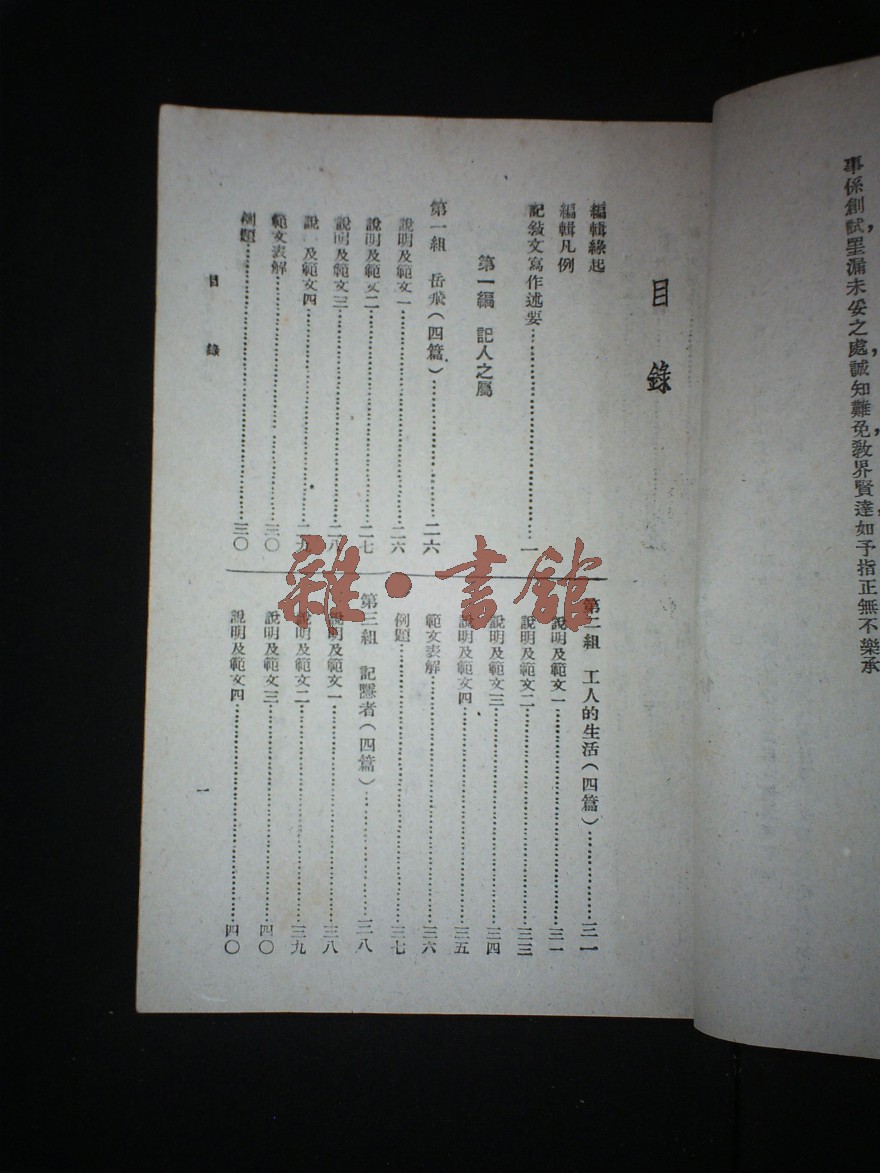 事係創試罣漏未妥之處，誠知難免，敎界賢達，如予指正，無不樂承
目錄
編輯緣起
編輯凡例
記敍文寫作述要……一
第一編 記人之屬
第一組 岳飛（四篇）……二六
說明及範文一……二六
說明及範文二……二七
說明及範文三……二八
說 及範文四……二九
範文表解……三〇
例題……三〇
第二組 工人的生活（四篇）……三一
說明及範文一……三一
說明及範文二……三三
說明及範文三……三四
說明及範文四……三五
範文表解……三六
例題……三七
第三組 記隱者（四篇）……三八
說明及範文一……三八
說明及範文二……三九
說明及範文三……四〇
說明及範文四……四〇
目錄
一
雜·書館